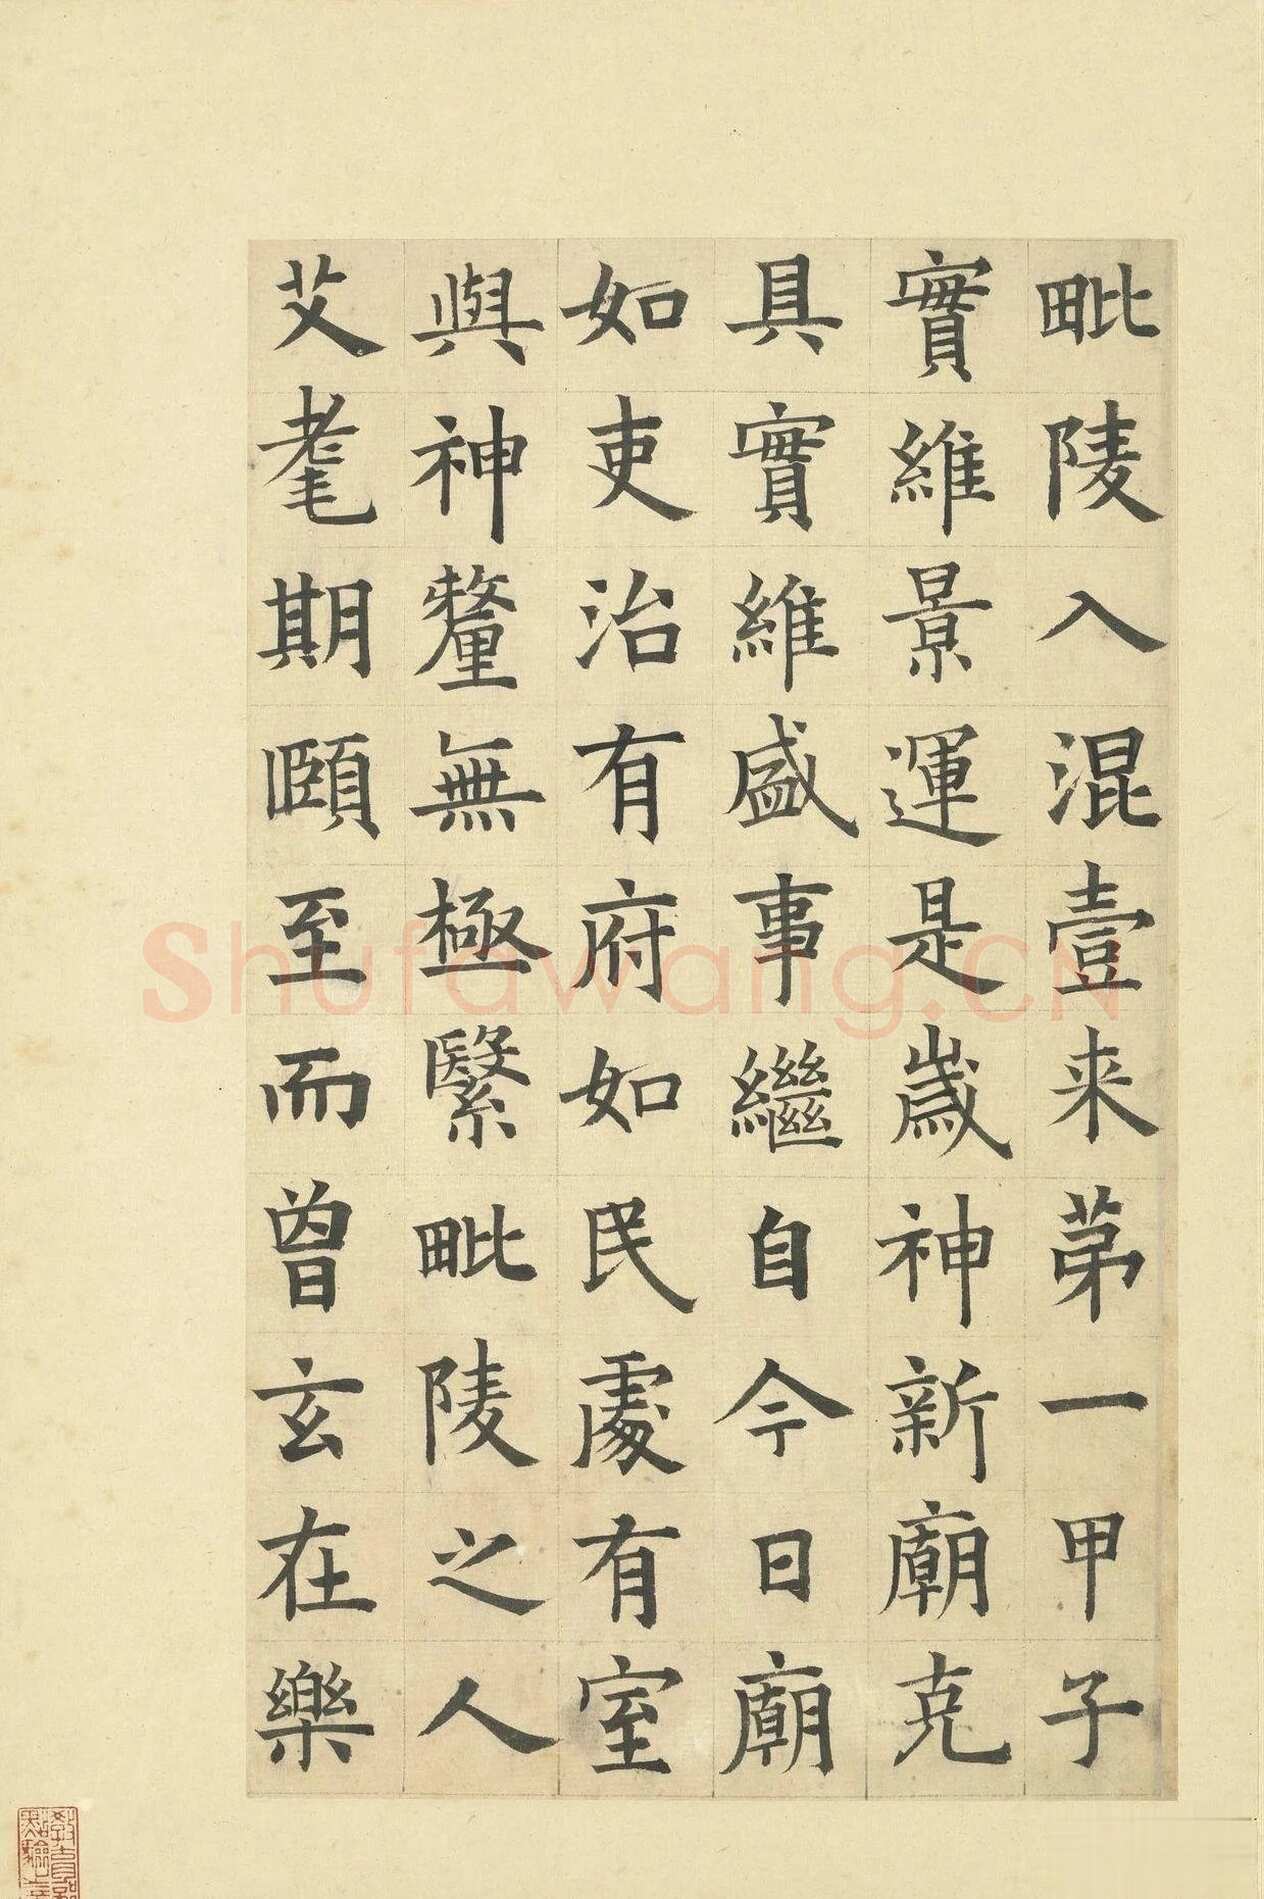 毗陵入混壹来苐一甲子
實維景運是歲神新廟克
具實維盛事繼自今日廟
如吏治有府如民處有室
與神釐無極繄毗陵之人
艾耄期頤至而曾玄在樂
Shufawang.CN